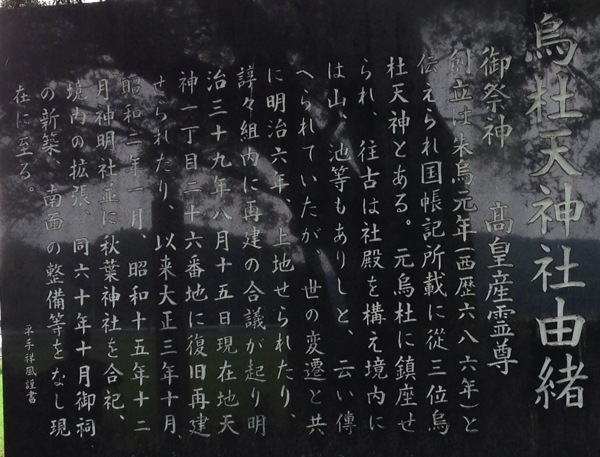 烏杜天神社由緒
御祭神　高皇産霊尊
創立は朱烏元年(西歴六八六年)と
伝えられ国帳記所載に從三位烏
杜天神とある。元烏杜に鎮座せ
られ、往古は社殿を構え境内に
は山、池等もありしと、云い傳
へられていたが、世の変遷と共
に明治六年、上地せられたり、
諄々組内に再建の合議が起り明
治三十九年八月十五日現在地天
神一丁目二十六番地に復旧再建
せられたり、以来大正三年十月、
昭和二年一月、昭和十五年十二
月神明社並に秋葉神社を合祀、
境内の拡張、同六十年十月御祠
の新築、南面の整備等をなし現
在に至る。
平手祥風謹書